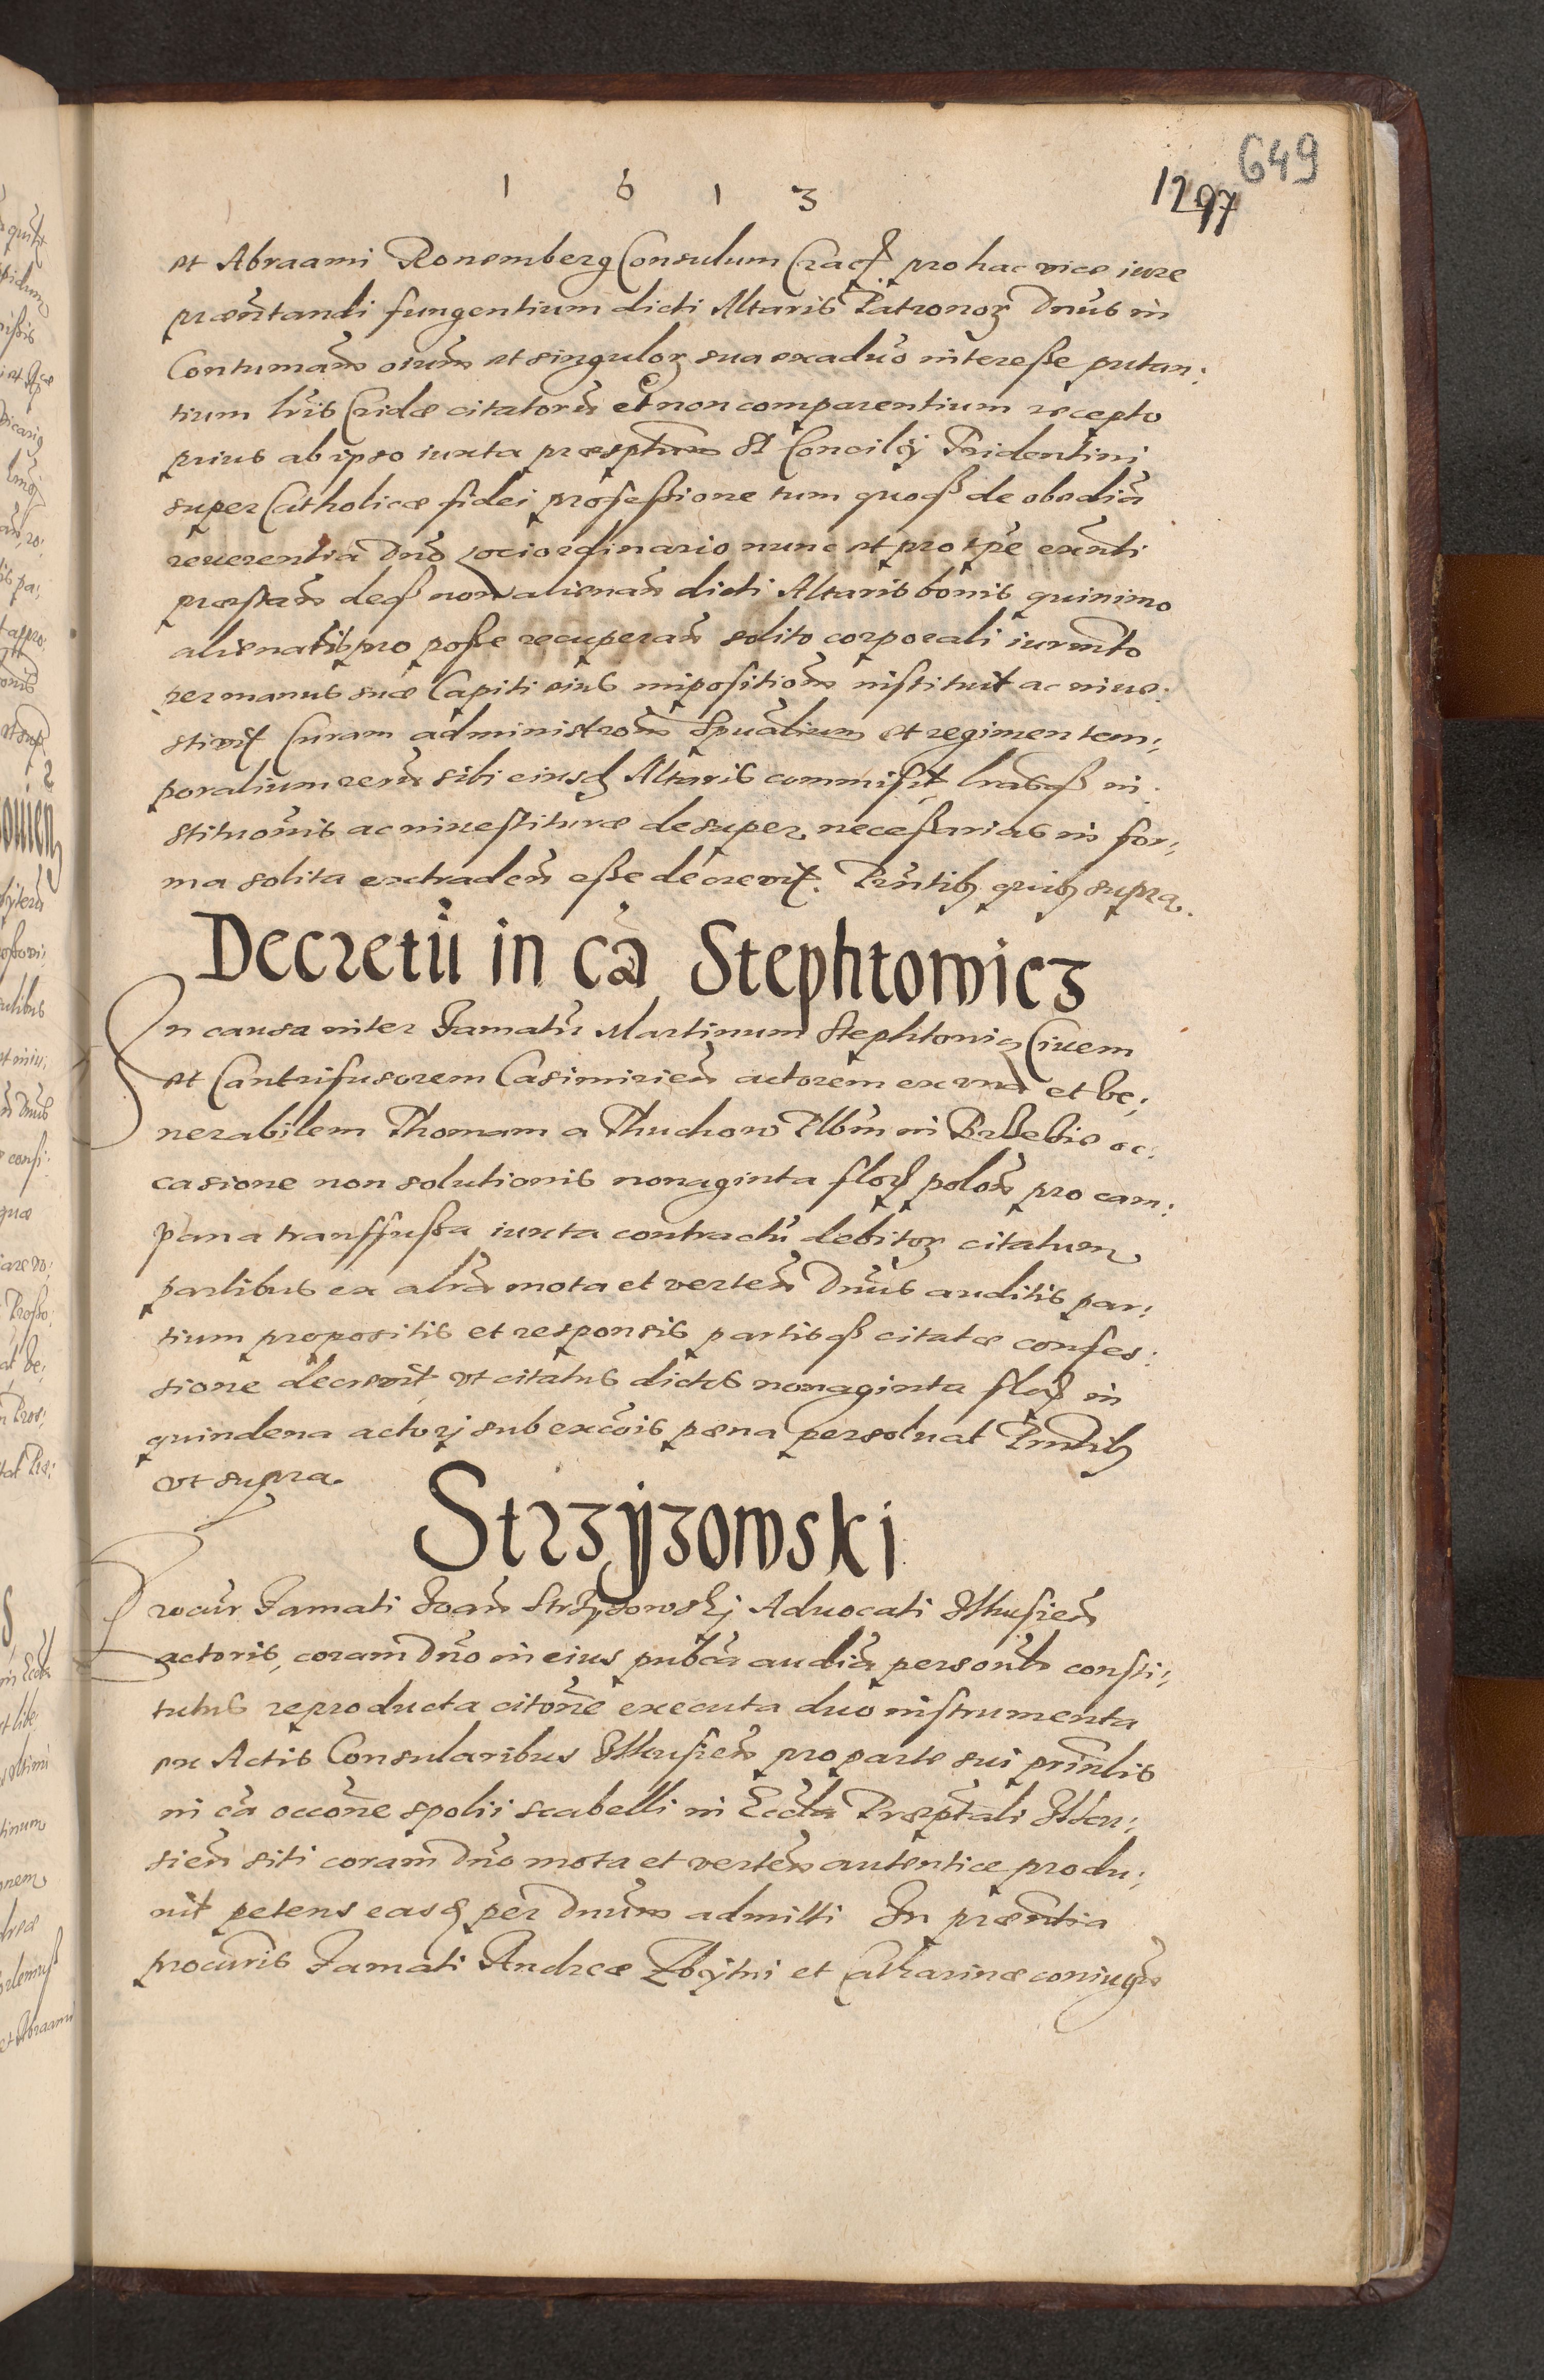 1 6 1 3
649
1297
et Abraami Ronemberg Consulum Cracꝭ. pro hac vice iure
præñtandi fungentium dicti Altaris Patronoꝝ Dnũs in
Contumam̃ oium̃ et singuloꝝ sua exaduõ interesse putan:
tium lrĩs Cridæ citatorũ et non comparentium recepto
prius ab ipso iuxta præsptum̃ St Concilÿ Tridentini
super Catholicæ fidei professione tum quoqꝫ de obediã
reuerentia Dnõ Loci ordinario nunc et pro tp̃e exñti
præstañ deqꝫ non alienañ dicti Altaris bonis quinimo
alienatis pro posse recuperañ solito corporali iurm̃to
per manus suæ Capiti eius impositiom̃ instituit ac inue:
stiuit Curam administrom̃ Spũalium et regimen tem:
poralium rerũ sibi eiusdꝫ Altaris commisit lr̃asqꝫ in:
stituonĩs ac inuestituræ desuper necessarias in for:
ma solita extradeñ esse decreuit. Prñtibꝫ quibꝫ supra.
Decretũ in cã Stephtowicz
In causa inter Famatũ Martinum Stephtowicz Ciuem
et Cantrifusorem Casimirieñ actorem ex vna et Ve:
nerabilem Thomam a Thuchow Plbm̃ in Brzezie oc:
casione non solutionis nonaginta florꝭ poloñ pro cam:
pana transfussa iuxta contractũ debitoꝝ citatum
partibus ex altrã mota et verteñ Dnũs auditis par:
tium propositis et responsis partisqꝫ citatæ confes:
sione decreuit, vt citatus dictos nonaginta florꝭ in
quindena actori sub excõis pæna persoluat Prñtibꝫ
vt supra.
Strzyzowski
Procũr Famati Joañ Strzyzowskj Aduocati Ilkusieñ
actoris, coram Dnõ in eius publcã audiã personlr̃ consti:
tutus reproducta citonẽ executa duo instrumenta
ex Actis Consularibus Ilkusieñ pro parte sui prin̄lis
in cã occonẽ spolii scabelli in Eccła Præp̃tali Ilku:
sieñ siti coram Dnõ mota et verteñ autentice produ:
xit petens easdꝫ per Dnũm admitti In præñtia
procuris̃ Famati Andreæ Zbytni et Catharinæ coniugũ